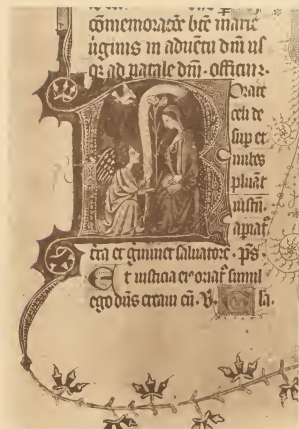 cōmemoracõe bīē marie
ūginis in advētu dn̄i usꝫ
ad natale dn̄i. officiū.
Rorate
celi de
sup et
nubes
pluāt
iustū.
apiat̄
t̄ra et g̃minet salvatorē. p̄s.
Et iusticia oriat̄ simul
ego dn̄s creavi eū. V. Gla.